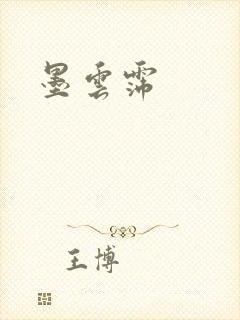 墨雲霈
王博